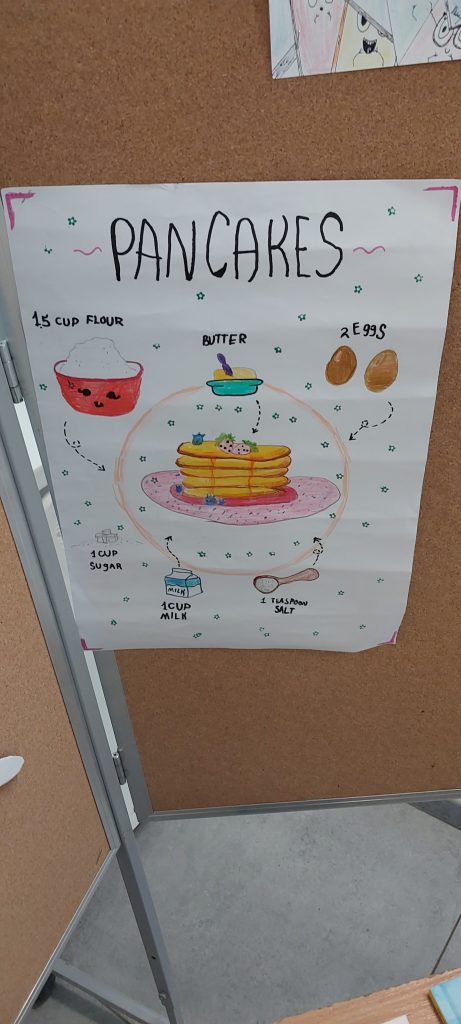 PANCAKES
1.5 CUP FLOUR
BUTTER
2 EggS
1 CUP
SUGAR
MILK
1 CUP
MILK
1 TEASPOON
SALT